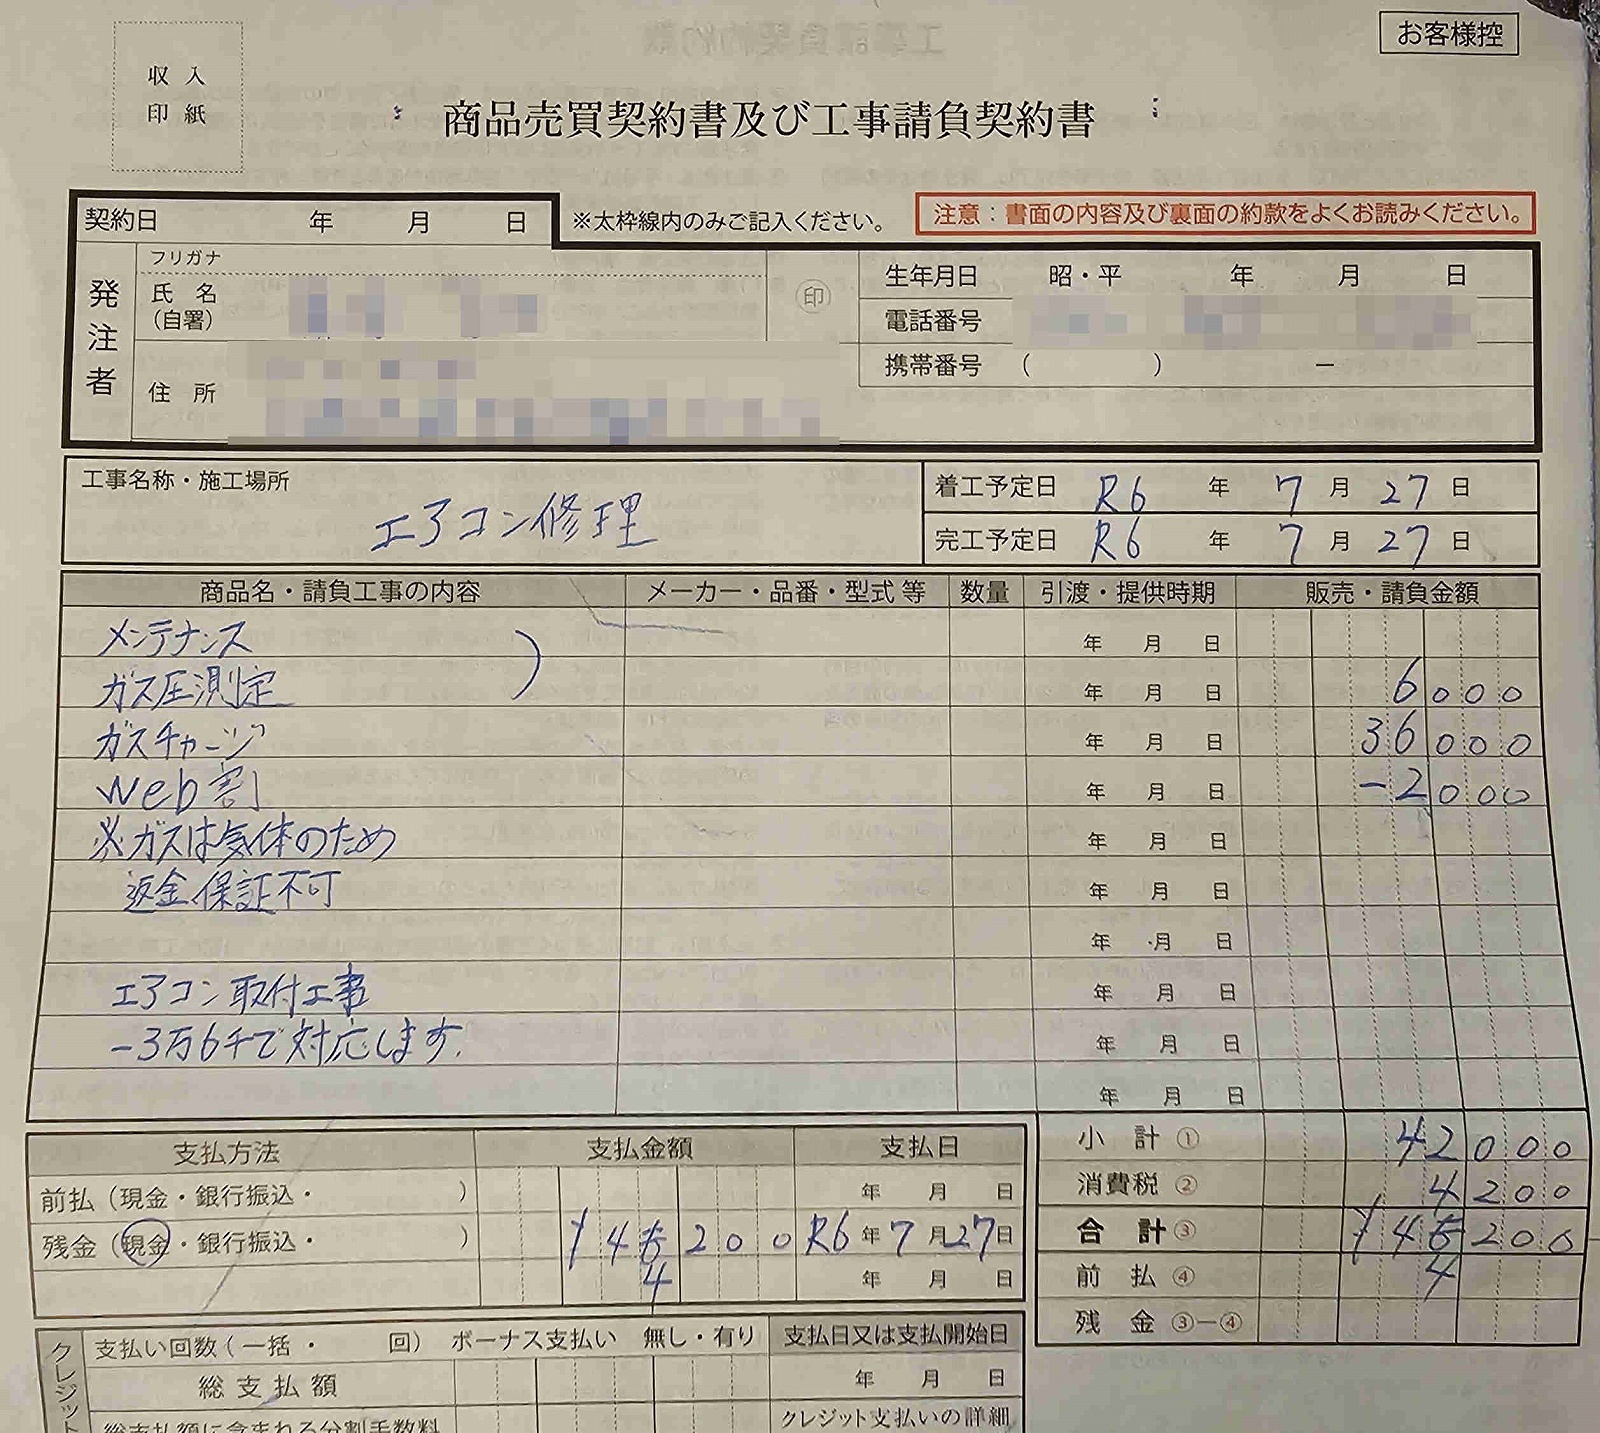 お客様控
収入
印紙
商品売買契約書及び工事請負契約書
契約日 年 月 日
※太枠線内のみご記入ください。
注意：書面の内容及び裏面の約款をよくお読みください。
発注者
フリガナ
氏 名
（自署）
印
生年月日 昭・平 年 月 日
電話番号
携帯番号 （ ） ー
住 所
工事名称・施工場所
エアコン修理
着工予定日 R6 年 7 月 27 日
完工予定日 R6 年 7 月 27 日
商品名・請負工事の内容 メーカー・品番・型式 等 数量 引渡・提供時期 販売・請負金額
メンテナンス 年 月 日
ガス圧測定 年 月 日 6000
ガスチャージ 年 月 日 36000
Web割 年 月 日 -2000
※ガスは気体のため 年 月 日
返金保証不可 年 月 日
年 月 日
エアコン取付工事 年 月 日
-3万6千で対応します. 年 月 日
年 月 日
支払方法 支払金額 支払日
前払（現金・銀行振込・ ） 年 月 日
残金（現金・銀行振込・ ） ¥46200 R6年 7月27日
4 年 月 日
小 計① 42000
消費税② 4200
合 計③ ¥46200
前 払④ 4
残 金③－④
クレジット
支払い回数（一括・ 回） ボーナス支払い 無し・有り 支払日又は支払開始日
総支払額 年 月 日
総支払額に含まれる分割手数料 クレジット支払いの詳細